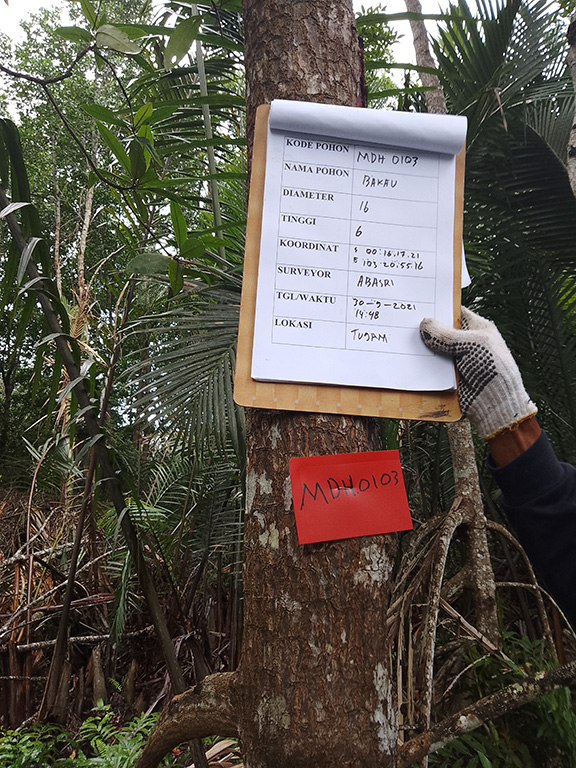 KODE POHON MDH 0103
NAMA POHON BAKAU
DIAMETER 16
TINGGI 6
KOORDINAT S 00:16.17.21
E 103.20.55.16
SURVEYOR ABASRI
TGL/WAKTU 30-9-2021
14:48
LOKASI TUJAM
MDH 0103